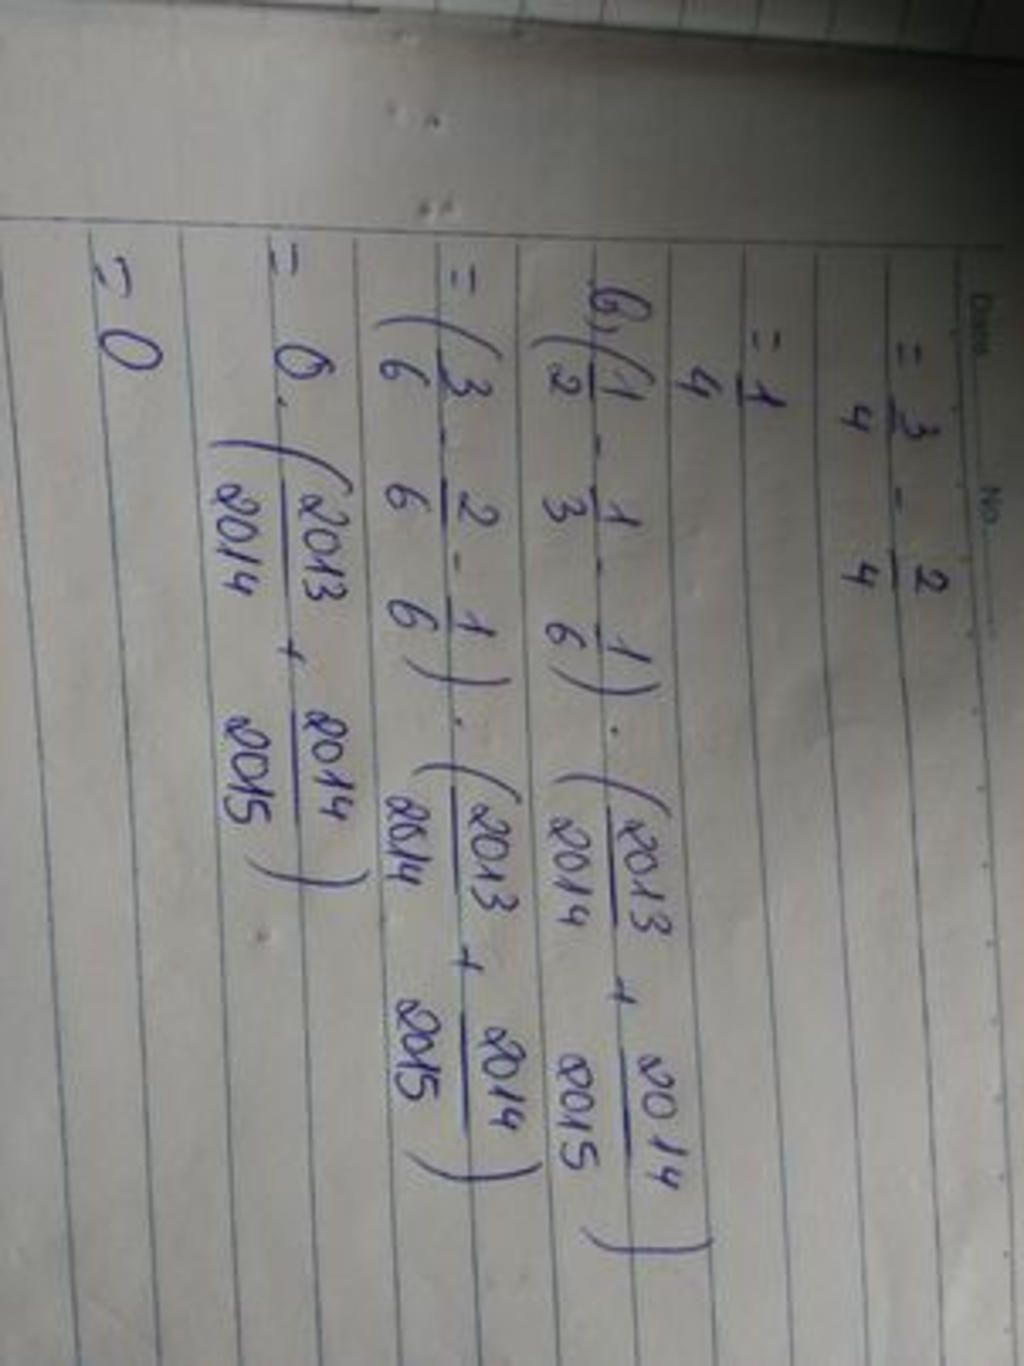 Date No.
= 3/4 - 2/4
= 1/4
b, (1/2 - 1/3 - 1/6) . (2013/2014 + 2014/2015)
= (3/6 - 2/6 - 1/6) . (2013/2014 + 2014/2015)
= 0 . (2013/2014 + 2014/2015)
= 0